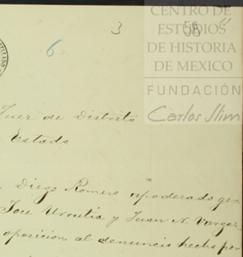 CENTRO DE
ESTUDIOS
DE HISTORIA
DE MEXICO
FUNDACIÓN
Carlos Slim
6
3
58
Juez de Distrito
Estado
Diego Romero apoderado gen
José Urrutia y Juan N. Vargas
oposicion al denuncio hecho por